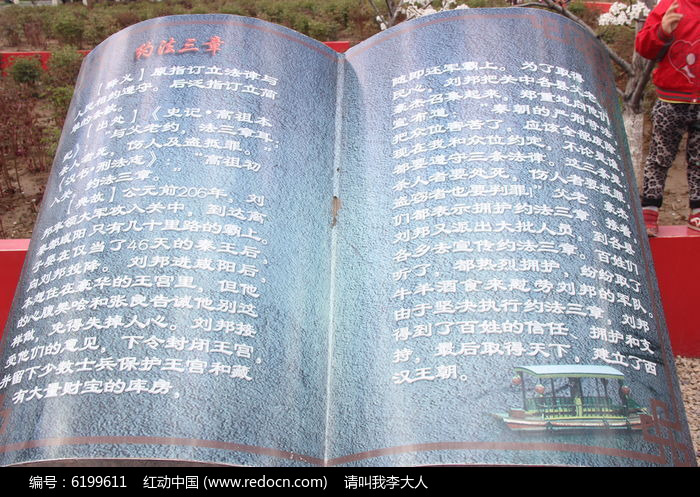 约法三章
【释义】原指订立法律与
人民相约遵守。后泛指订立简
单的条款。
【出处】《史记·高祖本
纪》："与父老约,法三章耳:
杀人者死,伤人及盗抵罪。"
《汉书·刑法志》:"高祖初
入关,约法三章。"
【典故】公元前206年,刘
邦率领大军攻入关中,到达离
秦都咸阳只有几十里路的霸上。
子婴在仅当了46天的秦王后,
向刘邦投降。刘邦进咸阳后,
本想住在豪华的王宫里,但他
的心腹樊哙和张良告诫他别这
样做,免得失掉人心。刘邦接
受他们的意见,下令封闭王宫,
并留下少数士兵保护王宫和藏
有大量财宝的库房,
随即还军霸上。为了取得
民心,刘邦把关中各县父老、
豪杰召集起来,郑重地向他们
宣布道:"秦朝的严刑苛法,
把众位害苦了,应该全部废除。
现在我和众位约定,不论是谁,
都要遵守三条法律。这三条是:
杀人者要处死,伤人者要抵罪,
盗窃者也要判罪!"父老、豪杰
们都表示拥护约法三章。接着,
刘邦又派出大批人员,到各县
各乡去宣传约法三章。百姓们
听了,都热烈拥护,纷纷取了
牛羊酒食来慰劳刘邦的军队。
由于坚决执行约法三章,刘邦
得到了百姓的信任、拥护和支
持,最后取得天下,建立了西
汉王朝。
编号:6199611 红动中国 (www.redocn.com) 请叫我李大人